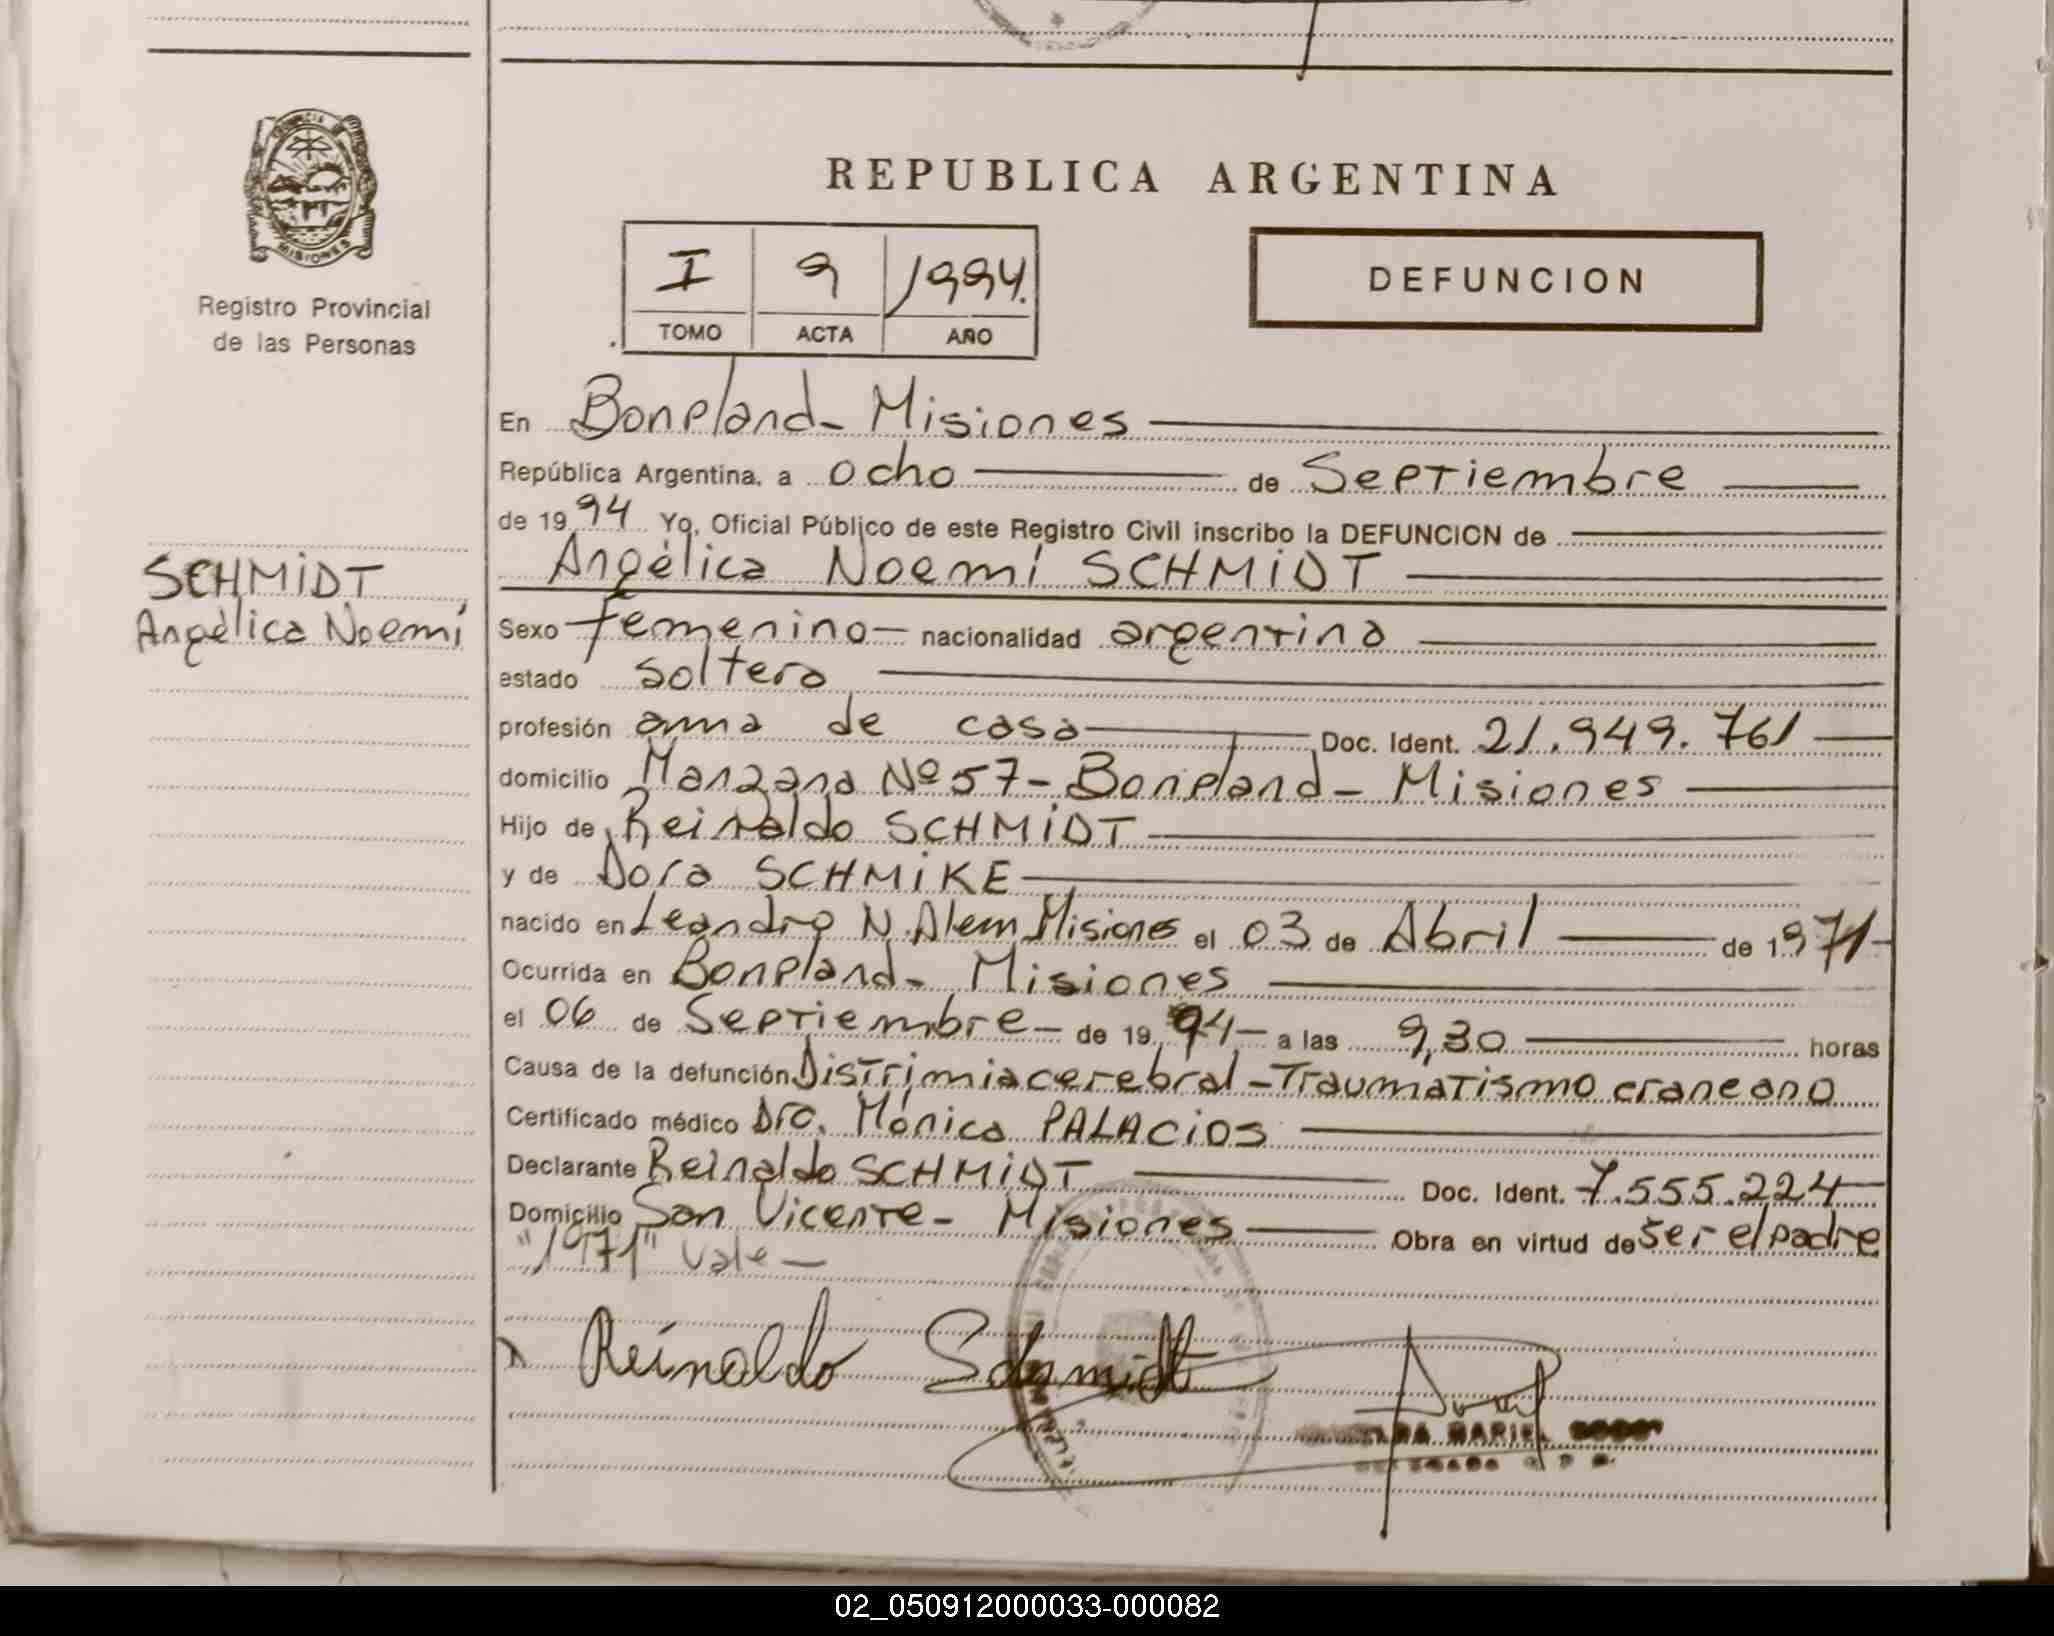 PROVINCIA DE
MISIONES
Registro Provincial
de las Personas
SCHMIDT
Angélica Noemí
REPUBLICA ARGENTINA
I 9 1994.
TOMO ACTA AÑO
DEFUNCION
En Bonpland - Misiones
República Argentina, a ocho de Septiembre
de 19 94 Yo, Oficial Público de este Registro Civil inscribo la DEFUNCION de
Angélica Noemí SCHMIDT
Sexo femenino - nacionalidad argentina
estado soltera
profesión ama de casa Doc. Ident. 21.949.761
domicilio Manzana Nº 57 - Bonpland - Misiones
Hijo de Reinaldo SCHMIDT
y de Dora SCHMIKE
nacido en Leandro N. Alem Misiones el 03 de Abril de 1971-
Ocurrida en Bonpland - Misiones
el 06 de Septiembre - de 19 94 - a las 9,30 horas
Causa de la defunción Distrimia cerebral - Traumatismo craneano
Certificado médico Dra. Mónica PALACIOS
Declarante Reinaldo SCHMIDT Doc. Ident. 7.555.224
Domicilio San Vicente - Misiones Obra en virtud de ser el padre
"1971" Vale -
Reinaldo Schmidt
MARIEL
02_050912000033-000082